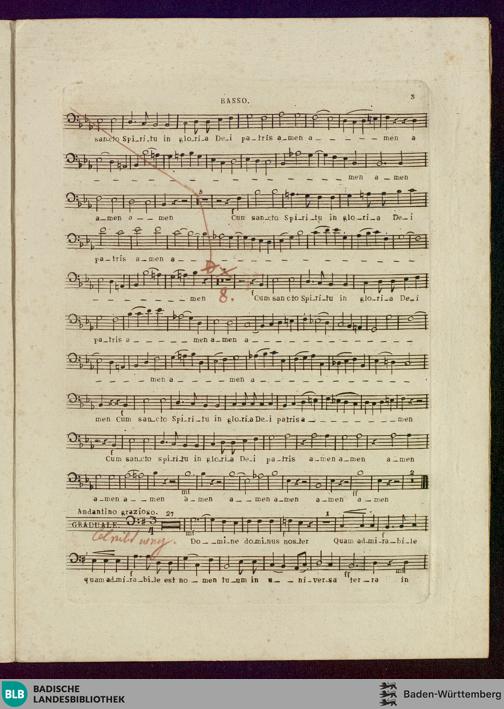 BASSO. 3
sancto Spi_ri_tu in glo_ri_a De_i pa_tris a_men a _ _ _ _ _ men a
_ _ _ _ _ _ _ _ _ _ _ _ men a_men
a_men a _ _ men Cum san_cto Spi_ri_tu in glo_ri_a De_i
pa_tris a_men a _ _ _ _ _ _ _ _ _ _ _
8.
_ _ _ _ _ _ men Cum sancto Spi_ri_tu in glo_ri_a De_i
pa_tris a _ _ _ _ _ men a_men a _ _ _ _ _ _ _ _
_ _ _ _ men a _ _ _ _ men a _ _ _ _ _ _ _ _ _
men Cum san_cto Spi_ri_tu in glo_ri_a De_i patris a _ _ _ _ _ _ _ men
Cum san_cto spi_ri_tu in glo_ri_a De_i pa_tris a_men a_men a_men
2
a_men a_men a_men a_men a_men a_men a_men
Andantino grazioso.
GRADUALE. 3 4 27 1
Do _ _ mi_ne do_mi_nus nos_ter Quam ad_mi_ra_bi_le
quam ad_mi_ra_bi_le est no_men tu_um in u _ _ ni_ver_sa ter_ra in
BLB BADISCHE
LANDESBIBLIOTHEK
Baden-Württemberg